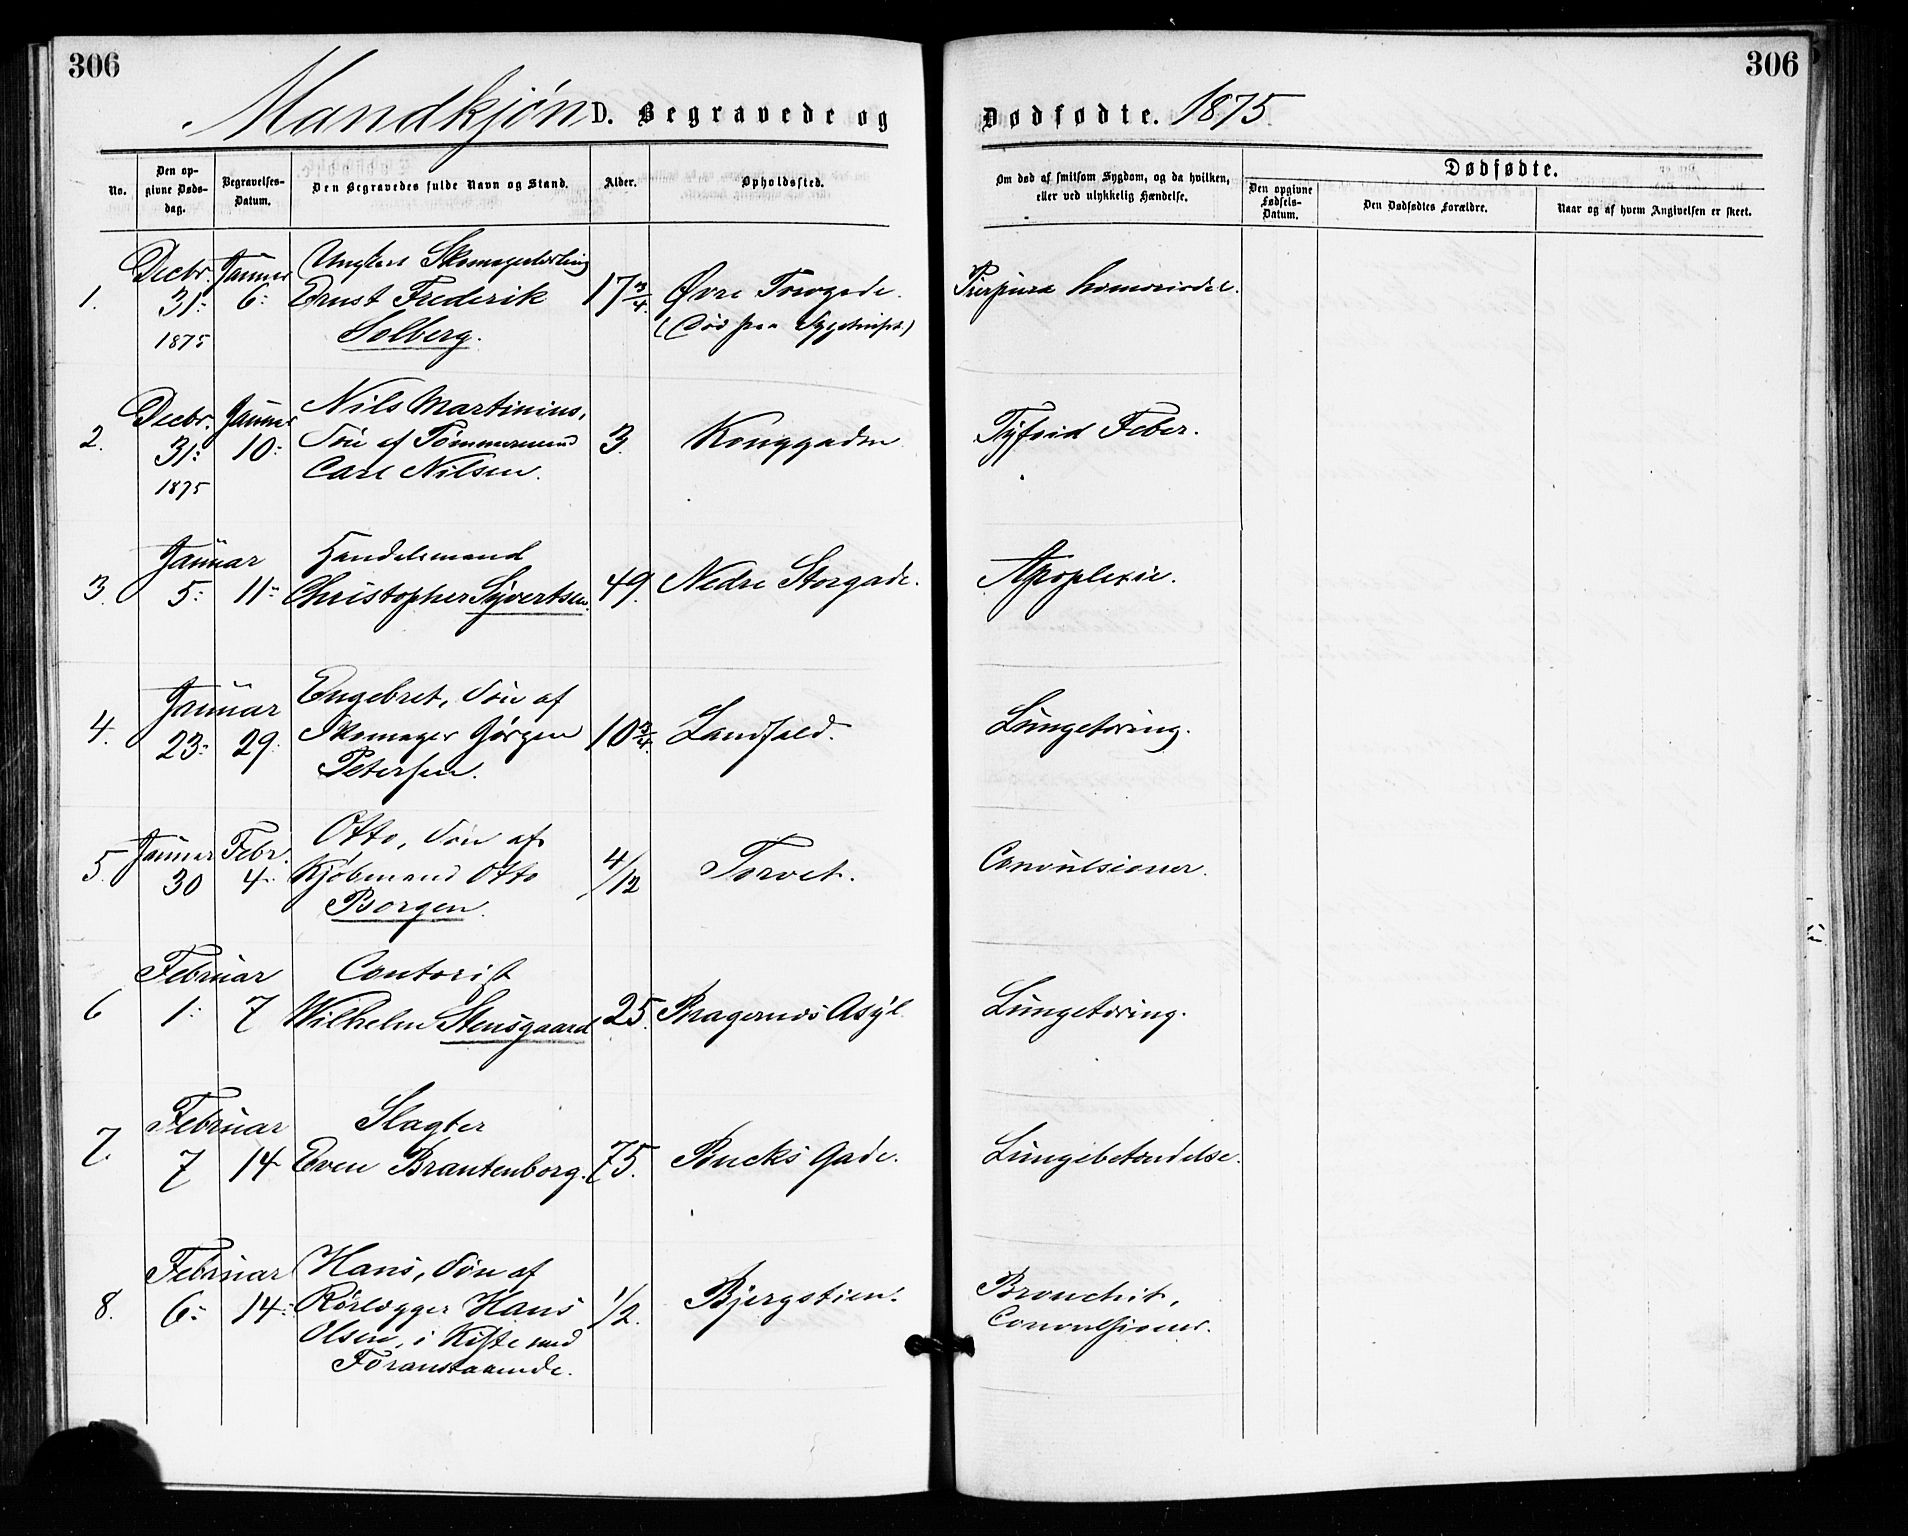 306
306
Mandkjøn D. Begravede og Dødfødte. 1875
No.
Den opgivne Døds-
dag.
Begravelses-
Datum.
Den Begravedes fulde Navn og Stand.
Alder.
Opholdssted.
Om død af smitsom Sygdom, og da hvilken,
eller ved ulykkelig Hændelse.
Dødfødte.
Den opgivne
Fødsels-
Datum.
Den Dødfødtes Forældre.
Naar og af hvem Angivelsen er skeet.
1. Decbr. 31: 1875
Januar 6:
Ungkarl Skomagerlærling
Ernst Frederik
Solberg.
17 3/4.
Øvre Torvgade.
(Død paa Sygehuset)
Purpura
2. Decbr. 31: 1875
Januar 10:
Nils Martinius,
Søn af Tømmermand
Carl Nilsen.
3.
Konggaden
Tyfoid Feber.
3. Januar
5: 11:
Handelsmand
Christopher Syvertsen.
49.
Nedre Storgade.
Apoplexie.
4. Januar
23: 29.
Engebret, Søn af
Skomager Jørgen
Petersen.
10 3/4.
Landfald.
Lungetæring.
5. Januar 30
Febr. 4.
Otto, Søn af
Kjøbmand Otto
Borgen.
4/12
Torvet.
Convulsioner.
6 Februar
1: 7
Contorist
Wilhelm Stensgaard
25.
Bragernes Asyl.
Lungetæring.
7. Februar
7 14
Slagter
Even Brantenborg.
75.
Bucks Gade.
Lungebetændelse.
8. Februar
6: 14:
Hans, Søn af
Rørlægger Hans
Olsen, i Kiste med
Foranstaaende.
1/2.
Bjergstien.
Bronchit,
Convulsioner.